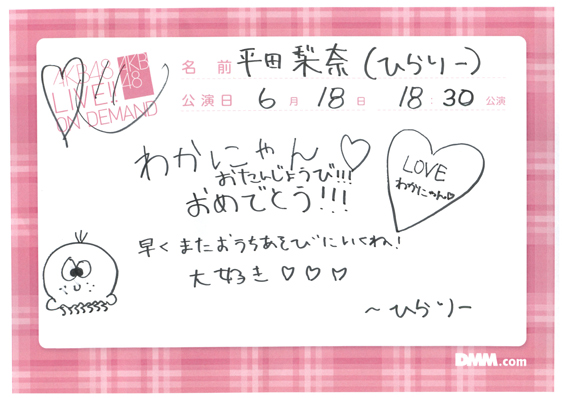 AKB48
LIVE!!
ON DEMAND
AKB
48
名 前 平田梨奈(ひらりー)
公演日 6月 18日 18:30 公演
わかにゃん♡
おたんじょうび!!!
おめでとう!!!
LOVE
わかにゃん♡
早くまたおうちあそびにいくね!
大好き♡♡♡
~ひらりー
DMM.com